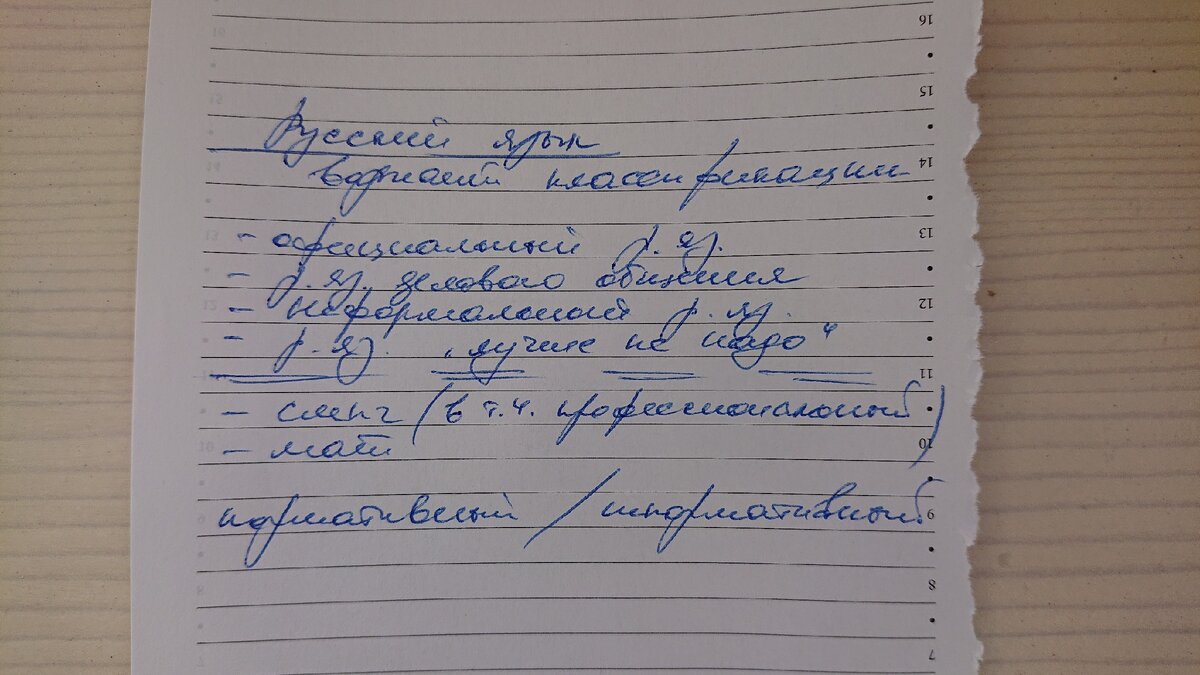 Русский язык
вариант классификации
- официальный р. яз.
- р. яз. делового общения
- неформальный р. яз.
- р. яз. „лучше не надо“
- сленг (в т.ч. профессиональный)
- мат
нормативный / ненормативный
16
15
14
13
12
11
10
9
8
7